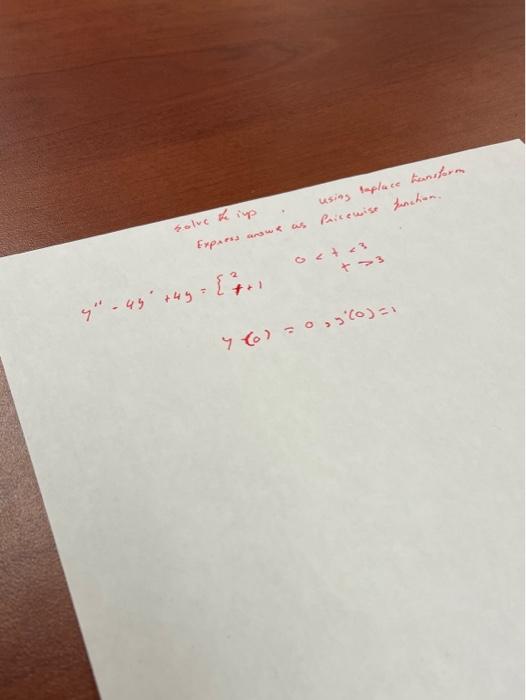 Solve the ivp. using laplace transform
Express answer as Piecewise function.
y'' - 4y' + 4y = { 2 0 < t < 3
t + 1 t > 3
y(0) = 0, y'(0) = 1